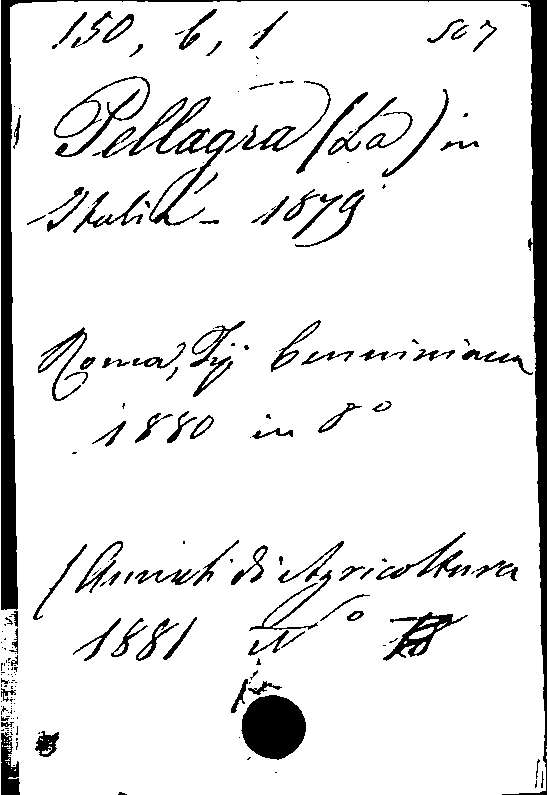 150, 6, 1 507
Pellagra (La) in
Italia - 1879
Roma, Tip. Cenniniana
1880 in 8°
(Annali di Agricoltura
1881 N° 18